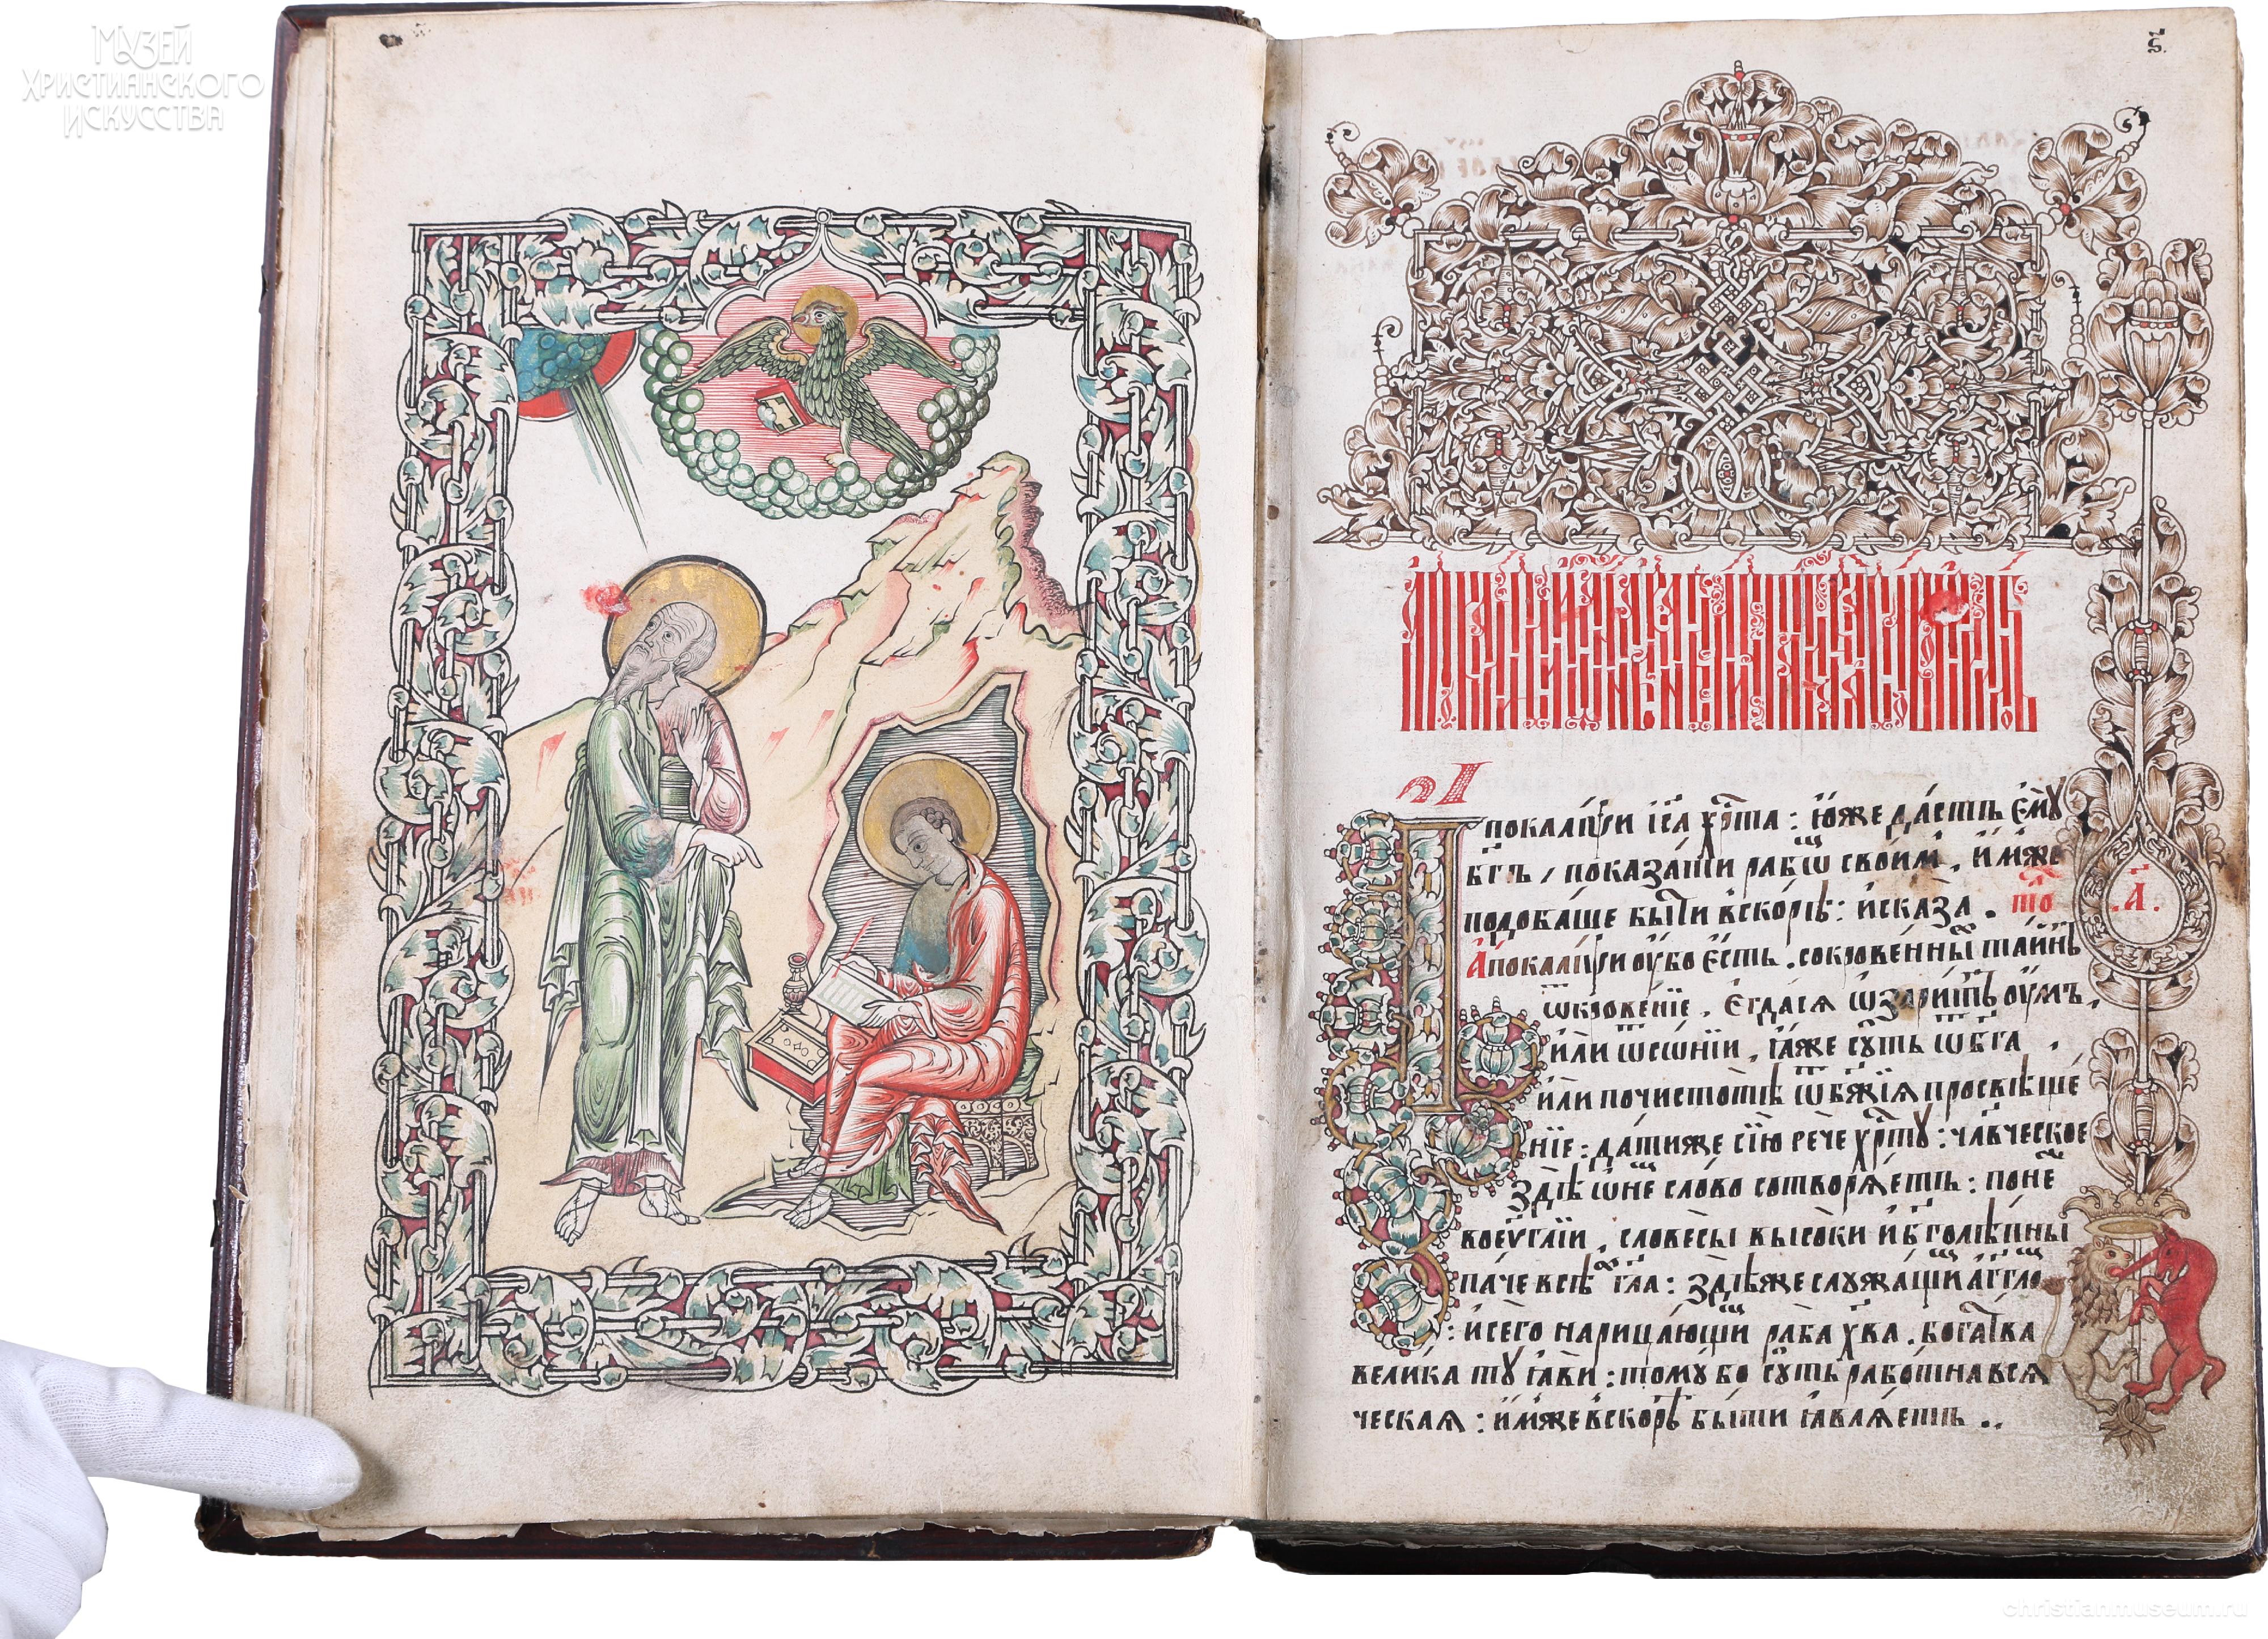 Музей
Христианского
искусства
а҃і
покалѱи і҆са хрⷭта : ю҆́же да́стъ є҆мꙋ̀
бг҃ъ , показа́ти рабѡⷨ свои́м , и҆́мже
подоба́ше бы́ти вско́рѣ : и҆ сказа̀ . тоⷧ
А҆покалѱи ᲂу҆́бо є҆́сть . сокрове́нныⷯ та́йнъ
ѿкрове́нїе , є҆гда́ сѧ ѡ҆зари́тъ ᲂу҆́мъ ,
и҆лѝ ѿ со́нїи , ꙗ҆̀же сꙋ́ть ѿ бг҃а .
и҆лѝ по чистотѣ̀ ѿ бж҃їѧ просвѣще
нїе : да́тиже сїю̀ рече хрⷭтꙋ̀ : чл҃вческое
здѣ ѡ҆ не́мъ сло́во сотворѧ́етъ : поне
во еѵⷢ҇лїи , словесы̀ высо́ки и҆ б҃голѣ́пны
па́че всѣⷯ гл҃а : здѣ́же слꙋжа́щи а҆́гг҃ло
: и҆ сего̀ нарица́ющи раба̀ хв҃а . бога́тства
вели́ка тꙋ̀ ꙗ҆ви : томꙋ́ бо сꙋ́ть рабо́тна всѧ
ческаѧ : и҆́мже вско́рѣ бы́ти ꙗ҆влѧ́етъ ..
.А҃.
christianmuseum.ru